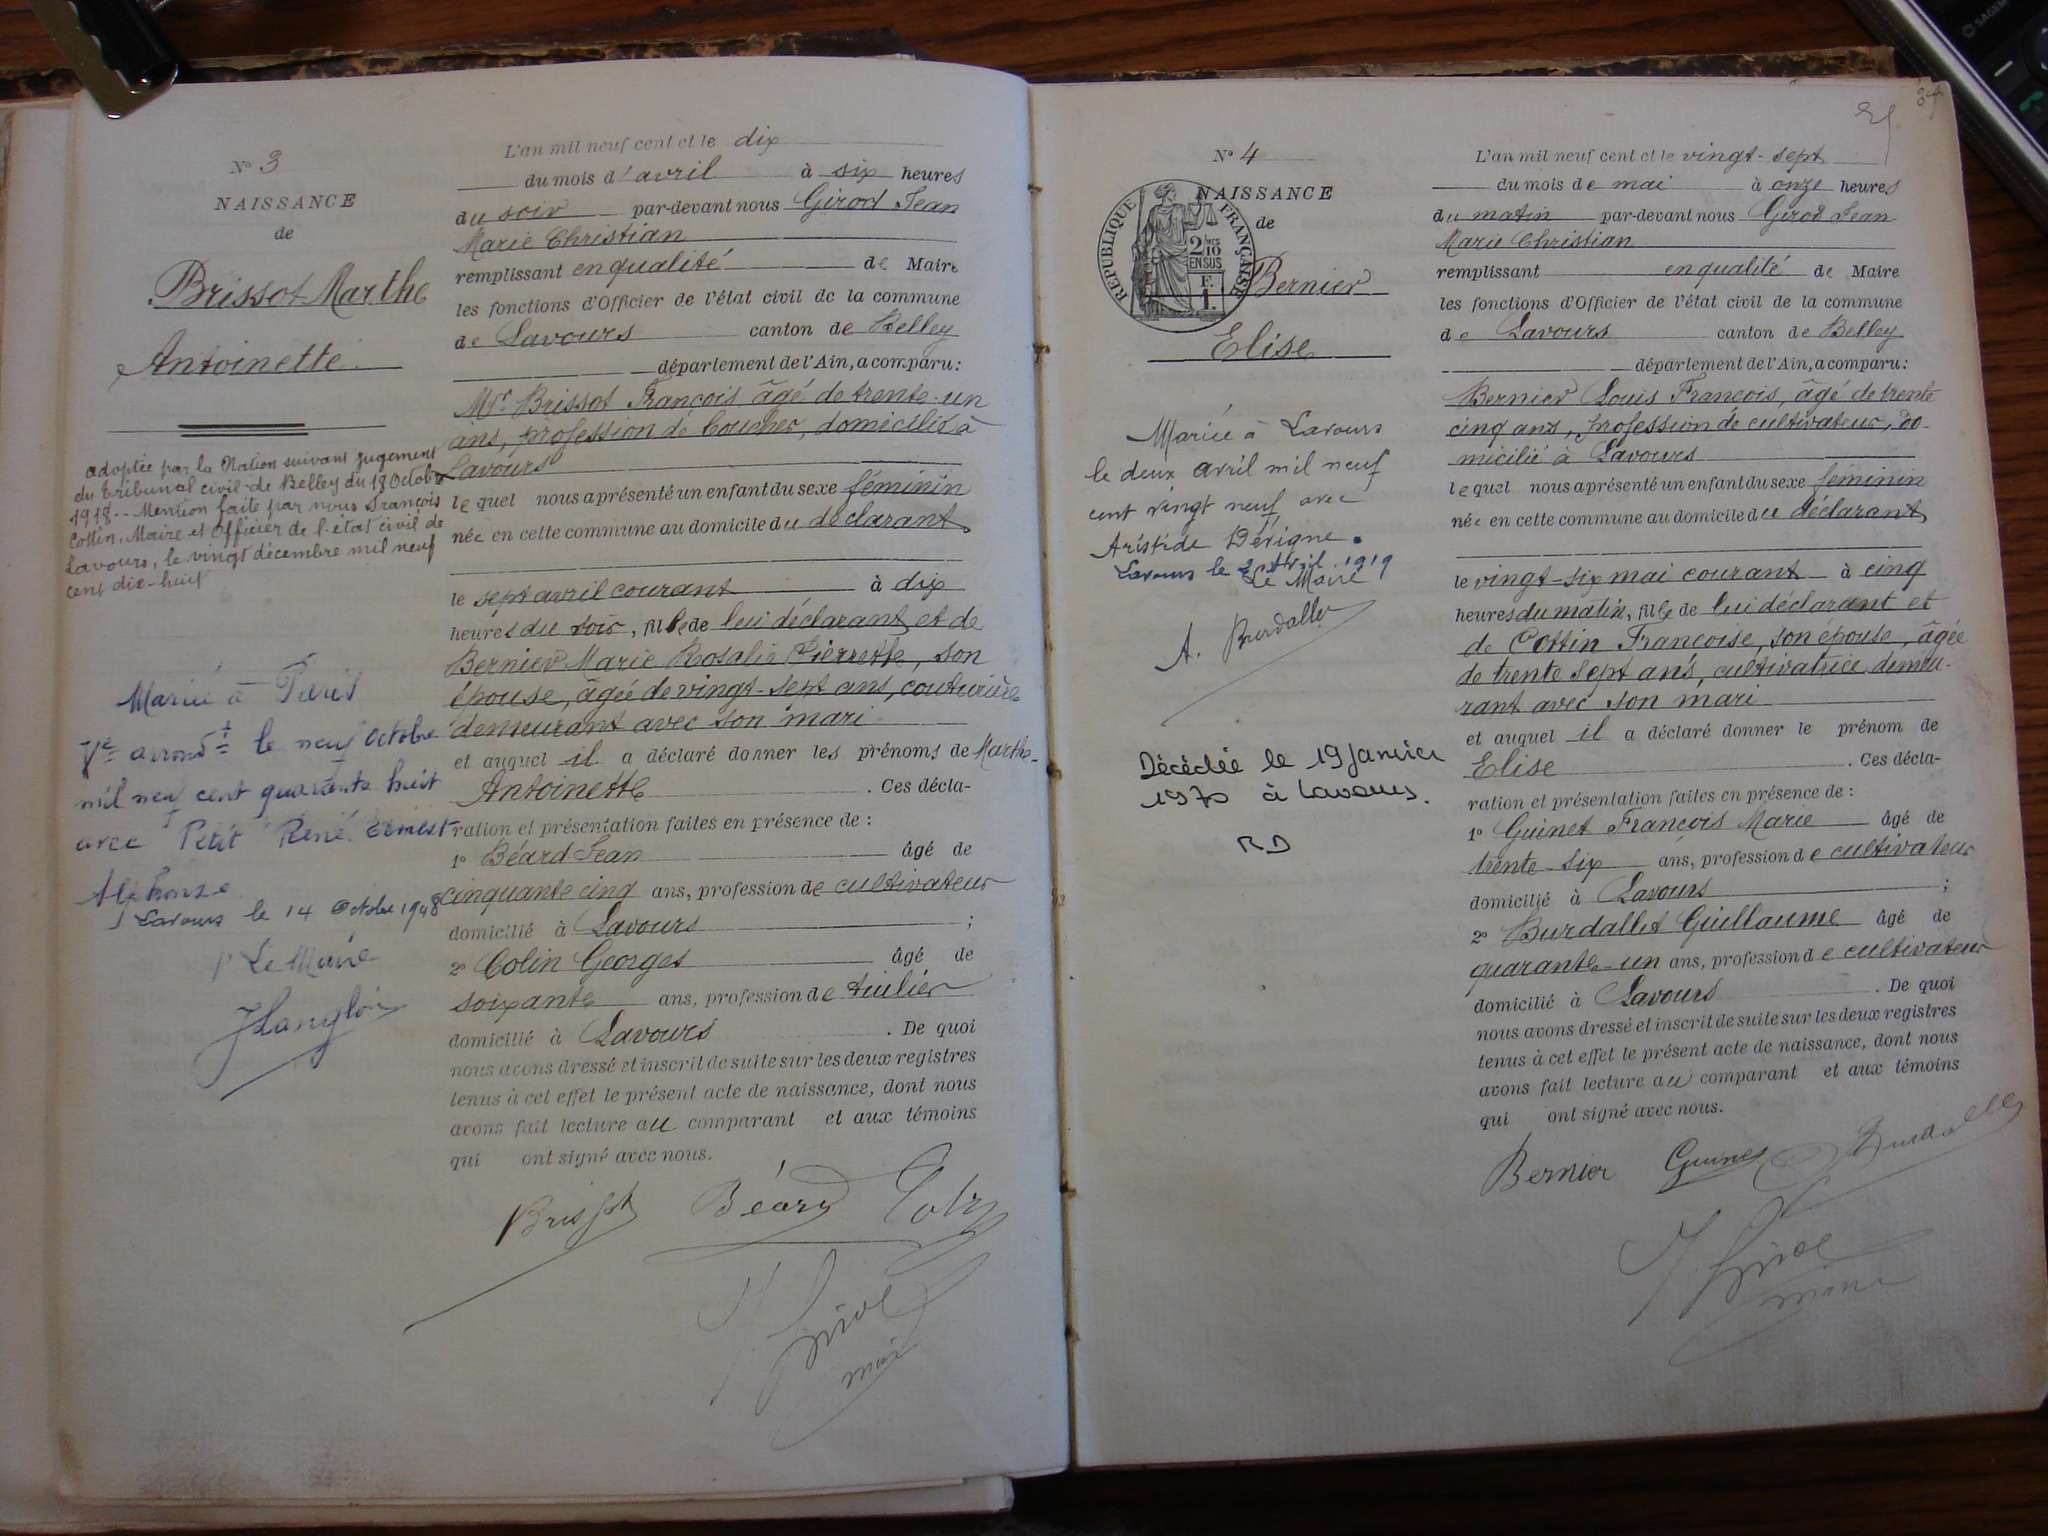 N° 3
NAISSANCE
de
Brissot Marthe
Antoinette
adoptée par la Nation suivant jugement
du tribunal civil de Belley du 18 Octobre
1918.. Mention faite par nous François
Cottin, Maire et Officier de l'état civil de
Lavours, le vingt décembre mil neuf
cent dix-huit
Mariée à Paris
Ve arrondt le neuf Octobre
mil neuf cent quarante huit
avec Petit René Ernest
Alphonse
Lavours le 14 Octobre 1948
Le Maire
L'an mil neuf cent et le dix
du mois d'avril à six heures
du soir par-devant nous Girod Jean
Marie Christian
remplissant en qualité de Maire
les fonctions d'Officier de l'état civil de la commune
de Lavours canton de Belley
département de l'Ain, a comparu:
Mr. Brissot François âgé de trente-un
ans, profession de boucher, domicilié à
Lavours
lequel nous a présenté un enfant du sexe féminin
née en cette commune au domicile du déclarant
le sept avril courant à dix
heures du soir, fille de lui déclarant et de
Bernier Marie Rosalie Pierrette, son
épouse, âgée de vingt-sept ans, couturière
demeurant avec son mari
et auquel il a déclaré donner les prénoms de Marthe-
Antoinette . Ces décla-
ration et présentation faites en présence de :
1° Béard Jean âgé de
cinquante cinq ans, profession de cultivateur
domicilié à Lavours ;
2° Colin Georges âgé de
soixante ans, profession de tuilier
domicilié à Lavours . De quoi
nous avons dressé et inscrit de suite sur les deux registres
tenus à cet effet le présent acte de naissance, dont nous
avons fait lecture au comparant et aux témoins
qui ont signé avec nous.
Brissot Béard Colin
J Girod
maire
N° 4
NAISSANCE
de
RÉPUBLIQUE FRANÇAISE
2/10
EN SUS
F.
1.
Bernier
Elise
Mariée à Lavours
le deux avril mil neuf
cent vingt neuf avec
Aristide Dérigne.
Lavours le 2 Avril 1919
Le Maire
A. Burdallet
Décédée le 19 janvier
1970 à Lavours.
RD
L'an mil neuf cent et le vingt-sept
du mois de mai à onze heures
du matin par-devant nous Girod Jean
Marie Christian
remplissant en qualité de Maire
les fonctions d'Officier de l'état civil de la commune
de Lavours canton de Belley
département de l'Ain, a comparu:
Bernier Louis François, âgé de trente
cinq ans, profession de cultivateur, do-
micilié à Lavours
lequel nous a présenté un enfant du sexe féminin
née en cette commune au domicile du déclarant
le vingt-six mai courant à cinq
heures du matin, fille de lui déclarant et
de Cottin Françoise, son épouse, âgée
de trente sept ans, cultivatrice demeu-
rant avec son mari
et auquel il a déclaré donner le prénom de
Elise . Ces décla-
ration et présentation faites en présence de :
1° Guinet François Marie âgé de
trente-six ans, profession de cultivateur
domicilié à Lavours ;
2° Burdallet Guillaume âgé de
quarante-un ans, profession de cultivateur
domicilié à Lavours . De quoi
nous avons dressé et inscrit de suite sur les deux registres
tenus à cet effet le présent acte de naissance, dont nous
avons fait lecture au comparant et aux témoins
qui ont signé avec nous.
Bernier Guinet Burdallet
J Girod
maire
SAGEM